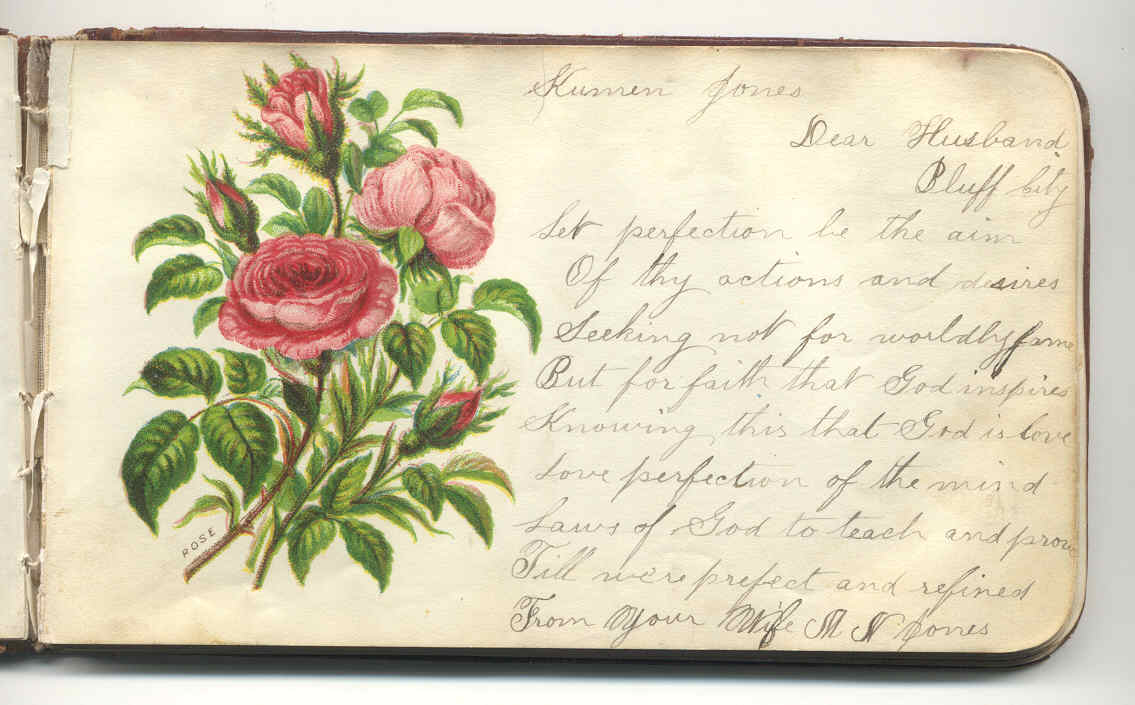 Kumen Jones
Dear Husband
Bluff City
Let perfection be the aim
Of thy actions and desires
Seeking not for worldly fame
But for faith that God inspires
Knowing this that God is love
Love perfection of the mind
Laws of God to teach and prove
Till we're prefect and refined
From Your Wife M N Jones
ROSE